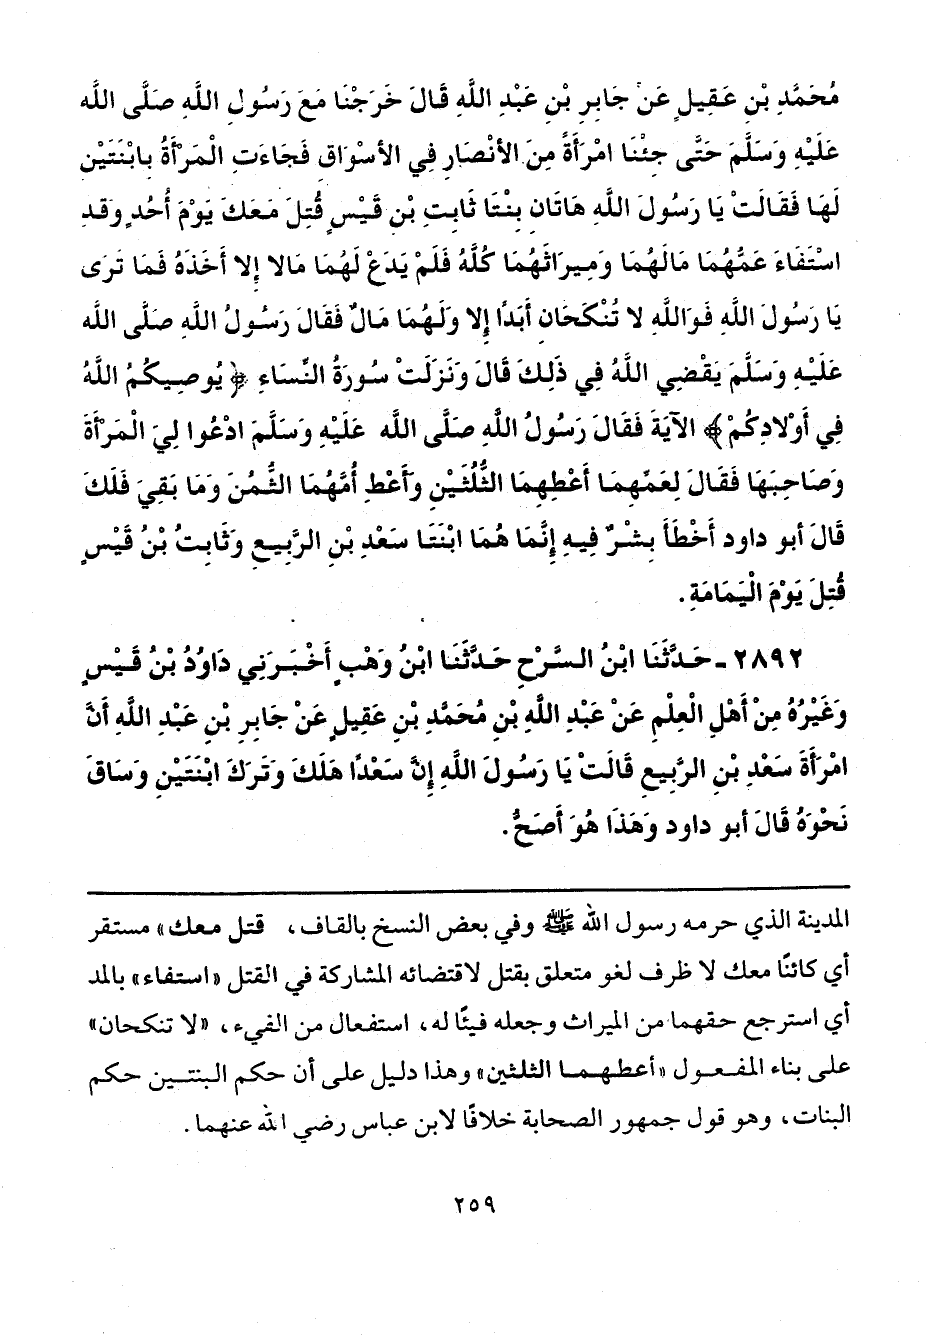 مُحَمَّدِ بْنِ عَقِيلٍ عَنْ جَابِرِ بْنِ عَبْدِ اللَّهِ قَالَ خَرَجْنَا مَعَ رَسُولِ اللَّهِ صَلَّى اللَّه
عَلَيْهِ وَسَلَّمَ حَتَّى جِئْنَا امْرَأَةً مِنَ الأَنْصَارِ فِي الأَسْوَاقِ فَجَاءَتِ الْمَرْأَةُ بِابْنَتَيْنِ
لَهَا فَقَالَتْ يَا رَسُولَ اللَّهِ هَاتَانِ بِنْتَا ثَابِتِ بْنِ قَيْسٍ قُتِلَ مَعَكَ يَوْمَ أُحُدٍ وَقَدِ
اسْتَفَاءَ عَمُّهُمَا مَالَهُمَا وَمِيرَاثَهُمَا كُلَّهُ فَلَمْ يَدَعْ لَهُمَا مَالا إِلا أَخَذَهُ فَمَا تَرَى
يَا رَسُولَ اللَّهِ فَوَاللَّهِ لا تُنْكَحَانِ أَبَدًا إِلا وَلَهُمَا مَالٌ فَقَالَ رَسُولُ اللَّهِ صَلَّى اللَّه
عَلَيْهِ وَسَلَّمَ يَقْضِي اللَّهُ فِي ذَلِكَ قَالَ وَنَزَلَتْ سُورَةُ النِّسَاءِ ﴿ يُوصِيكُمُ اللَّهُ
فِي أَوْلادِكُمْ﴾ الآيَةَ فَقَالَ رَسُولُ اللَّهِ صَلَّى اللَّه عَلَيْهِ وَسَلَّمَ ادْعُوا لِيَ الْمَرْأَةَ
وَصَاحِبَهَا فَقَالَ لِعَمِّهِمَا أَعْطِهِمَا الثُّلُثَيْنِ وَأَعْطِ أُمَّهُمَا الثُّمُنَ وَمَا بَقِيَ فَلَكَ
قَالَ أبو داود أَخْطَأَ بِشْرٌ فِيهِ إِنَّمَا هُمَا ابْنَتَا سَعْدِ بْنِ الرَّبِيعِ وَثَابِتُ بْنُ قَيْسٍ
قُتِلَ يَوْمَ الْيَمَامَةِ.
٢٨٩٢ - حَدَّثَنَا ابْنُ السَّرْحِ حَدَّثَنَا ابْنُ وَهْبٍ أَخْبَرَنِي دَاوُدُ بْنُ قَيْسٍ
وَغَيْرُهُ مِنْ أَهْلِ الْعِلْمِ عَنْ عَبْدِ اللَّهِ بْنِ مُحَمَّدِ بْنِ عَقِيلٍ عَنْ جَابِرِ بْنِ عَبْدِ اللَّهِ أَنَّ
امْرَأَةَ سَعْدِ بْنِ الرَّبِيعِ قَالَتْ يَا رَسُولَ اللَّهِ إِنَّ سَعْدًا هَلَكَ وَتَرَكَ ابْنَتَيْنِ وَسَاقَ
نَحْوَهُ قَالَ أبو داود وَهَذَا هُوَ أَصَحُّ.
المدينة الذي حرمه رسول الله ﷺ وفي بعض النسخ بالقاف، قتل معك» مستقر
أي كائنًا معك لا ظرف لغو متعلق بقتل لاقتضائه المشاركة في القتل «استفاء» بالمد
أي استرجع حقهما من الميراث وجعله فيئًا له، استفعال من الفيء، «لا تنكحان»
على بناء المفعول «أعطهما الثلثين» وهذا دليل على أن حكم البنتين حكم
البنات، وهو قول جمهور الصحابة خلافًا لابن عباس رضي الله عنهما.
٢٥٩